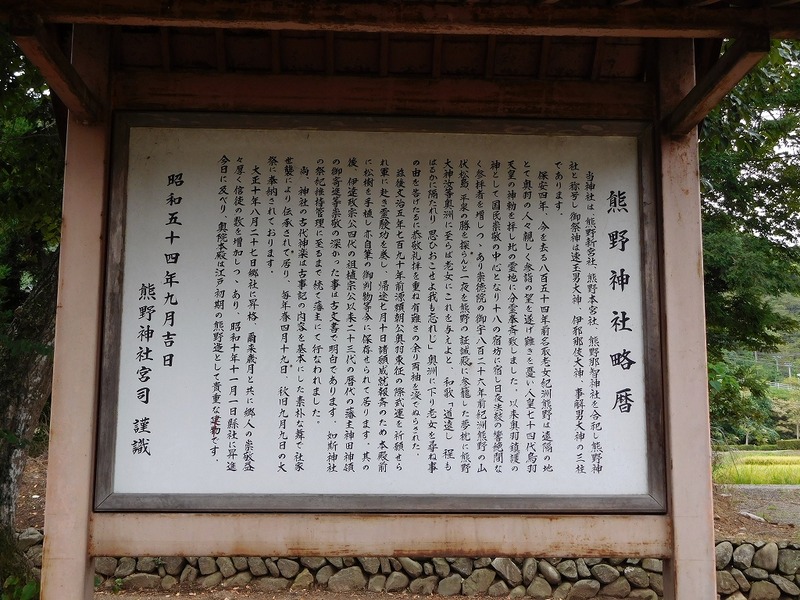 熊野神社略暦
当神社は、熊野新宮社、熊野本宮社、熊野那智神社を合祀し熊野神
社と称号し御祭神は速玉男大神、伊邪那美大神、事解男大神の三柱
であります。
保安四年、今を去る八百五十四年前名取老女紀洲熊野は遠隔の地
とて奥羽の人々親しく参詣の望を遂げ難きを憂い人皇七十四代鳥羽
天皇の神勅を拝し此の霊地に分霊奉斉致しました。以来奥羽鎮護の
神として国民崇敬の中心となり十八の宿坊に宿し日夜法楽の響絶間な
く参拝者を増しつゝあり崇徳院の御宇八百二十六年前紀洲熊野の山
伏松島、平泉の勝を探らんと一夜を熊野の証誠殿に参籠した夢枕に熊野
大神汝等奥洲に至らば老女にこれを与えよと、和歌「道遠し程も
はるかに隔たれり、思ひおこせよ我も忘れじ」奥洲に下り老女を尋ね事
の由を告げたるに恭敬礼拝を重ね有難さの余り両袖を涙でぬらされた。
益後文治五年七百九十年前源頼朝公奥羽東征の際武運を祈願せら
れ軍に赴き霊験功を奏し、帰途七月十日諸願成就報斉のため本殿前
に松樹を手植し亦自筆の御判物等今に保存せられて居ります。其の
後、伊達政宗公四代の祖植宗公以来二十三代の暦代の藩主神田神領
の御寄進等崇敬の深かった事は古文書で明白であります。如斯神社
の祭祀維持管理に至るまで続て藩主にて行なわれました。
尚、神社の古代神楽は古事記の内容を基本にした素朴な舞で社家
世襲により伝承されて居り、毎年春四月十九日、秋旧九月九日の大
祭に奉納されております。
大正十年八月二十七日郷社に昇格、爾来歳月と共に郷人の崇敬益
々厚く信徒の数を増加しつゝあり、昭和十年十一月一日県社に昇進
今日に及べり、奥院本殿は江戸初期の熊野造として貴重な建物です。
昭和五十四年九月吉日
熊野神社宮司 謹識